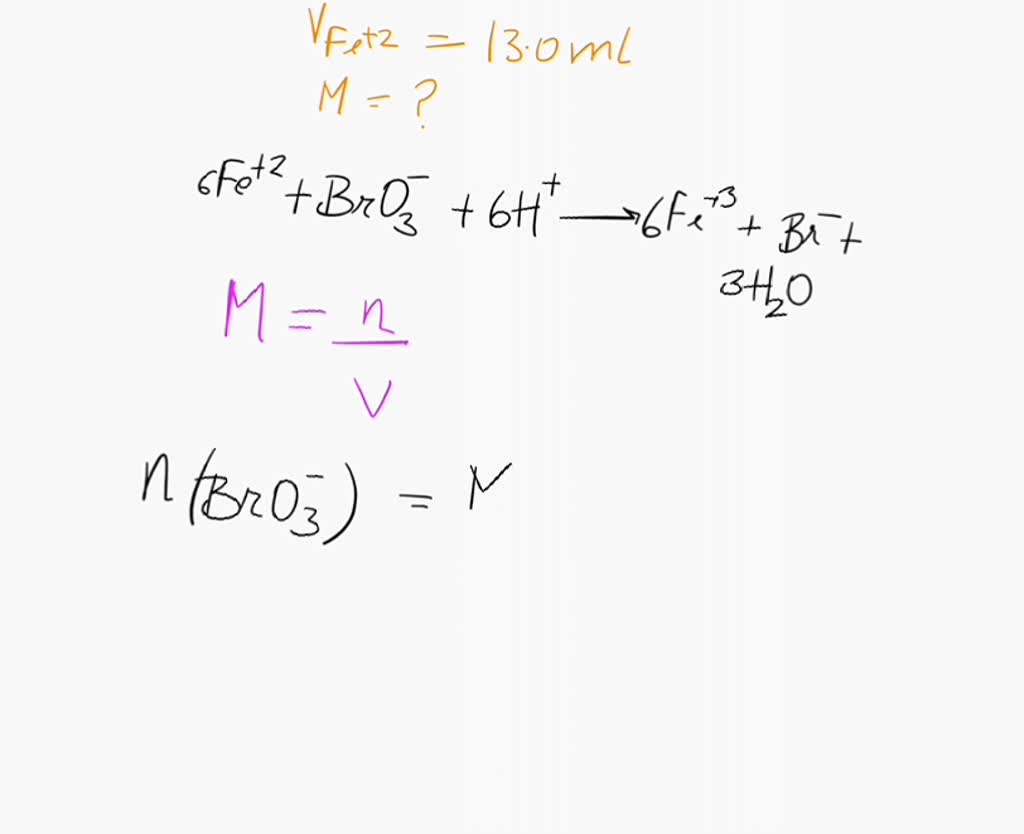 V Fe+2 = 13.0 ml
M = ?
6Fe+2 + BrO3- + 6H+ → 6Fe+3 + Br- +
3H2O
M = n/V
n(BrO3-) = M